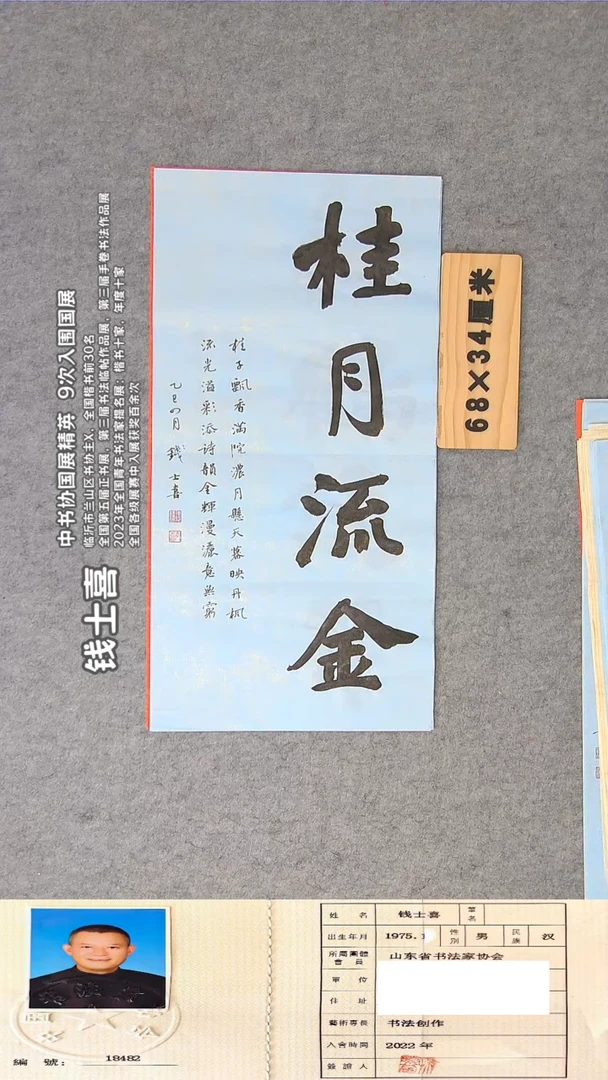 桂月流金
桂子飘香满院浓月悬天幕映丹枫
流光溢彩添诗韵金辉漫洒意无穷
乙巳四月 钱士喜
68×34厘米
钱士喜
中书协国展精英 9次入围国展
临沂市兰山区书协主X，全国楷书前30名
全国第五届正书展，第三届书法临帖作品展，第三届手卷书法作品展
2023年全国青年书法家提名展：楷书十家，年度十家
全国各级展赛中入展获奖百余次
編 號：18482
姓 名 钱士喜 筆名
出生年月 1975.1 性別 男 民族 汉
所屬團體會員 山东省书法家协会
單 位
住 址
藝術專長 书法创作
入會時間 2022 年
簽證人